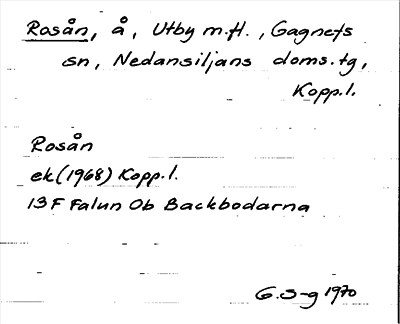 Rosån, å, Utby m.fl., Gagnefs
sn, Nedansiljans doms.tg,
Kopp.l.
Rosån
ek(1968) Kopp.l.
13F Falun Ob Backbodarna
G.S-g 1970